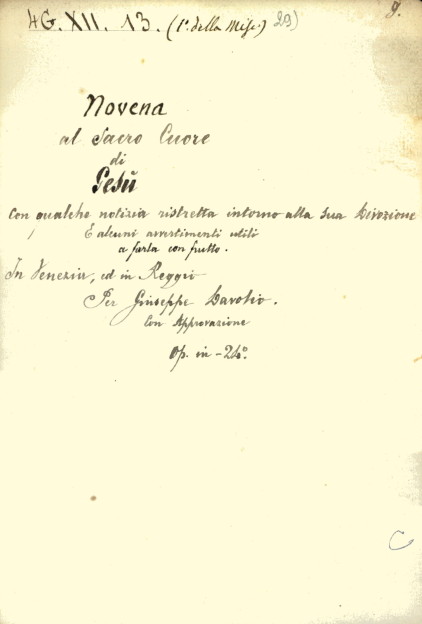 4G. XII. 13. (1ª della Misc.) 29) 9.
Novena
al Sacro Cuore
di
Gesù
Con qualche notizia ristretta intorno alla sua Divozione
E alcuni avvertimenti utili
a farla con frutto.
In Venezia, ed in Reggio
Per Giuseppe Davolio.
Con Approvazione
Op. in - 24º.
C